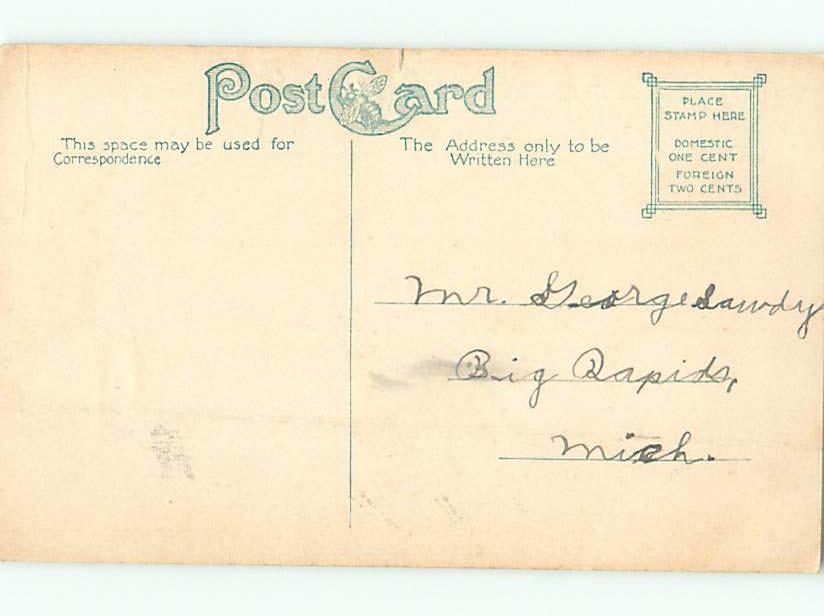 Post Card
This space may be used for
Correspondence
The Address only to be
Written Here
PLACE
STAMP HERE
DOMESTIC
ONE CENT
FOREIGN
TWO CENTS
Mr. George
Big Rapids,
Mich.